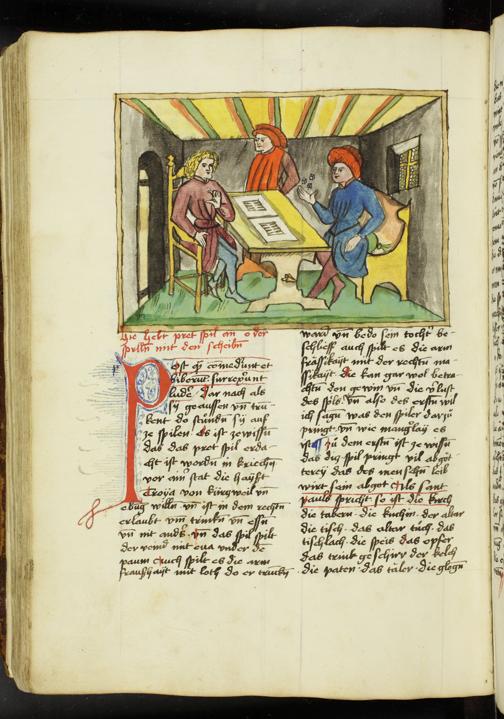 Hie hebt pret spil an oder
spilln mit den scheibn
Post qͥ comedunt et
biberunt surrexunt
lude. Dar nach als
sÿ geassen vn̄ trū
kent do stunkn sÿ auf
ze spilen. Es ist ze wissn̄
das das pret spil erda
cht ist wordn̄ in kriechn̄
vor ain stat die haÿst
Troÿa von kurczweil vn̄
willn̄ vn̄ ist in dem rechtn̄
erlaubt vm trinkn̄ vn̄ essn̄
vn̄ nit andˢ. vn̄ das spil spilt
der mit eua vnder de
paum auch spilt es die arm
mit loth do er trunkn̄
ward vn̄ bede sein tocht be-
schlieff auch spilt es die arm
frässikaÿt mit der rechtn̄ ma-
ssikaÿt die kan gar wol betra-
chtn̄ den gewin vn̄ die vͦlust
des spils. Vn̄ also des erstn̄ wil
ich sagn̄ was den spiler darzů
pringt vn̄ wie manhlaÿ es
ist zů dem erstn̄ ist ze wissn̄
das diz spil pringt vil abgöt
tereÿ das des menschn̄ leib
wirt sein abgot als sant
pauls spricht so ist die kirch
die tabern. die kuchin. der altar
die tisch. das altar tůch. das
tischlach. die speis das opfer
das trink geschirr der kelch
die paten. das täler. die glogn̄